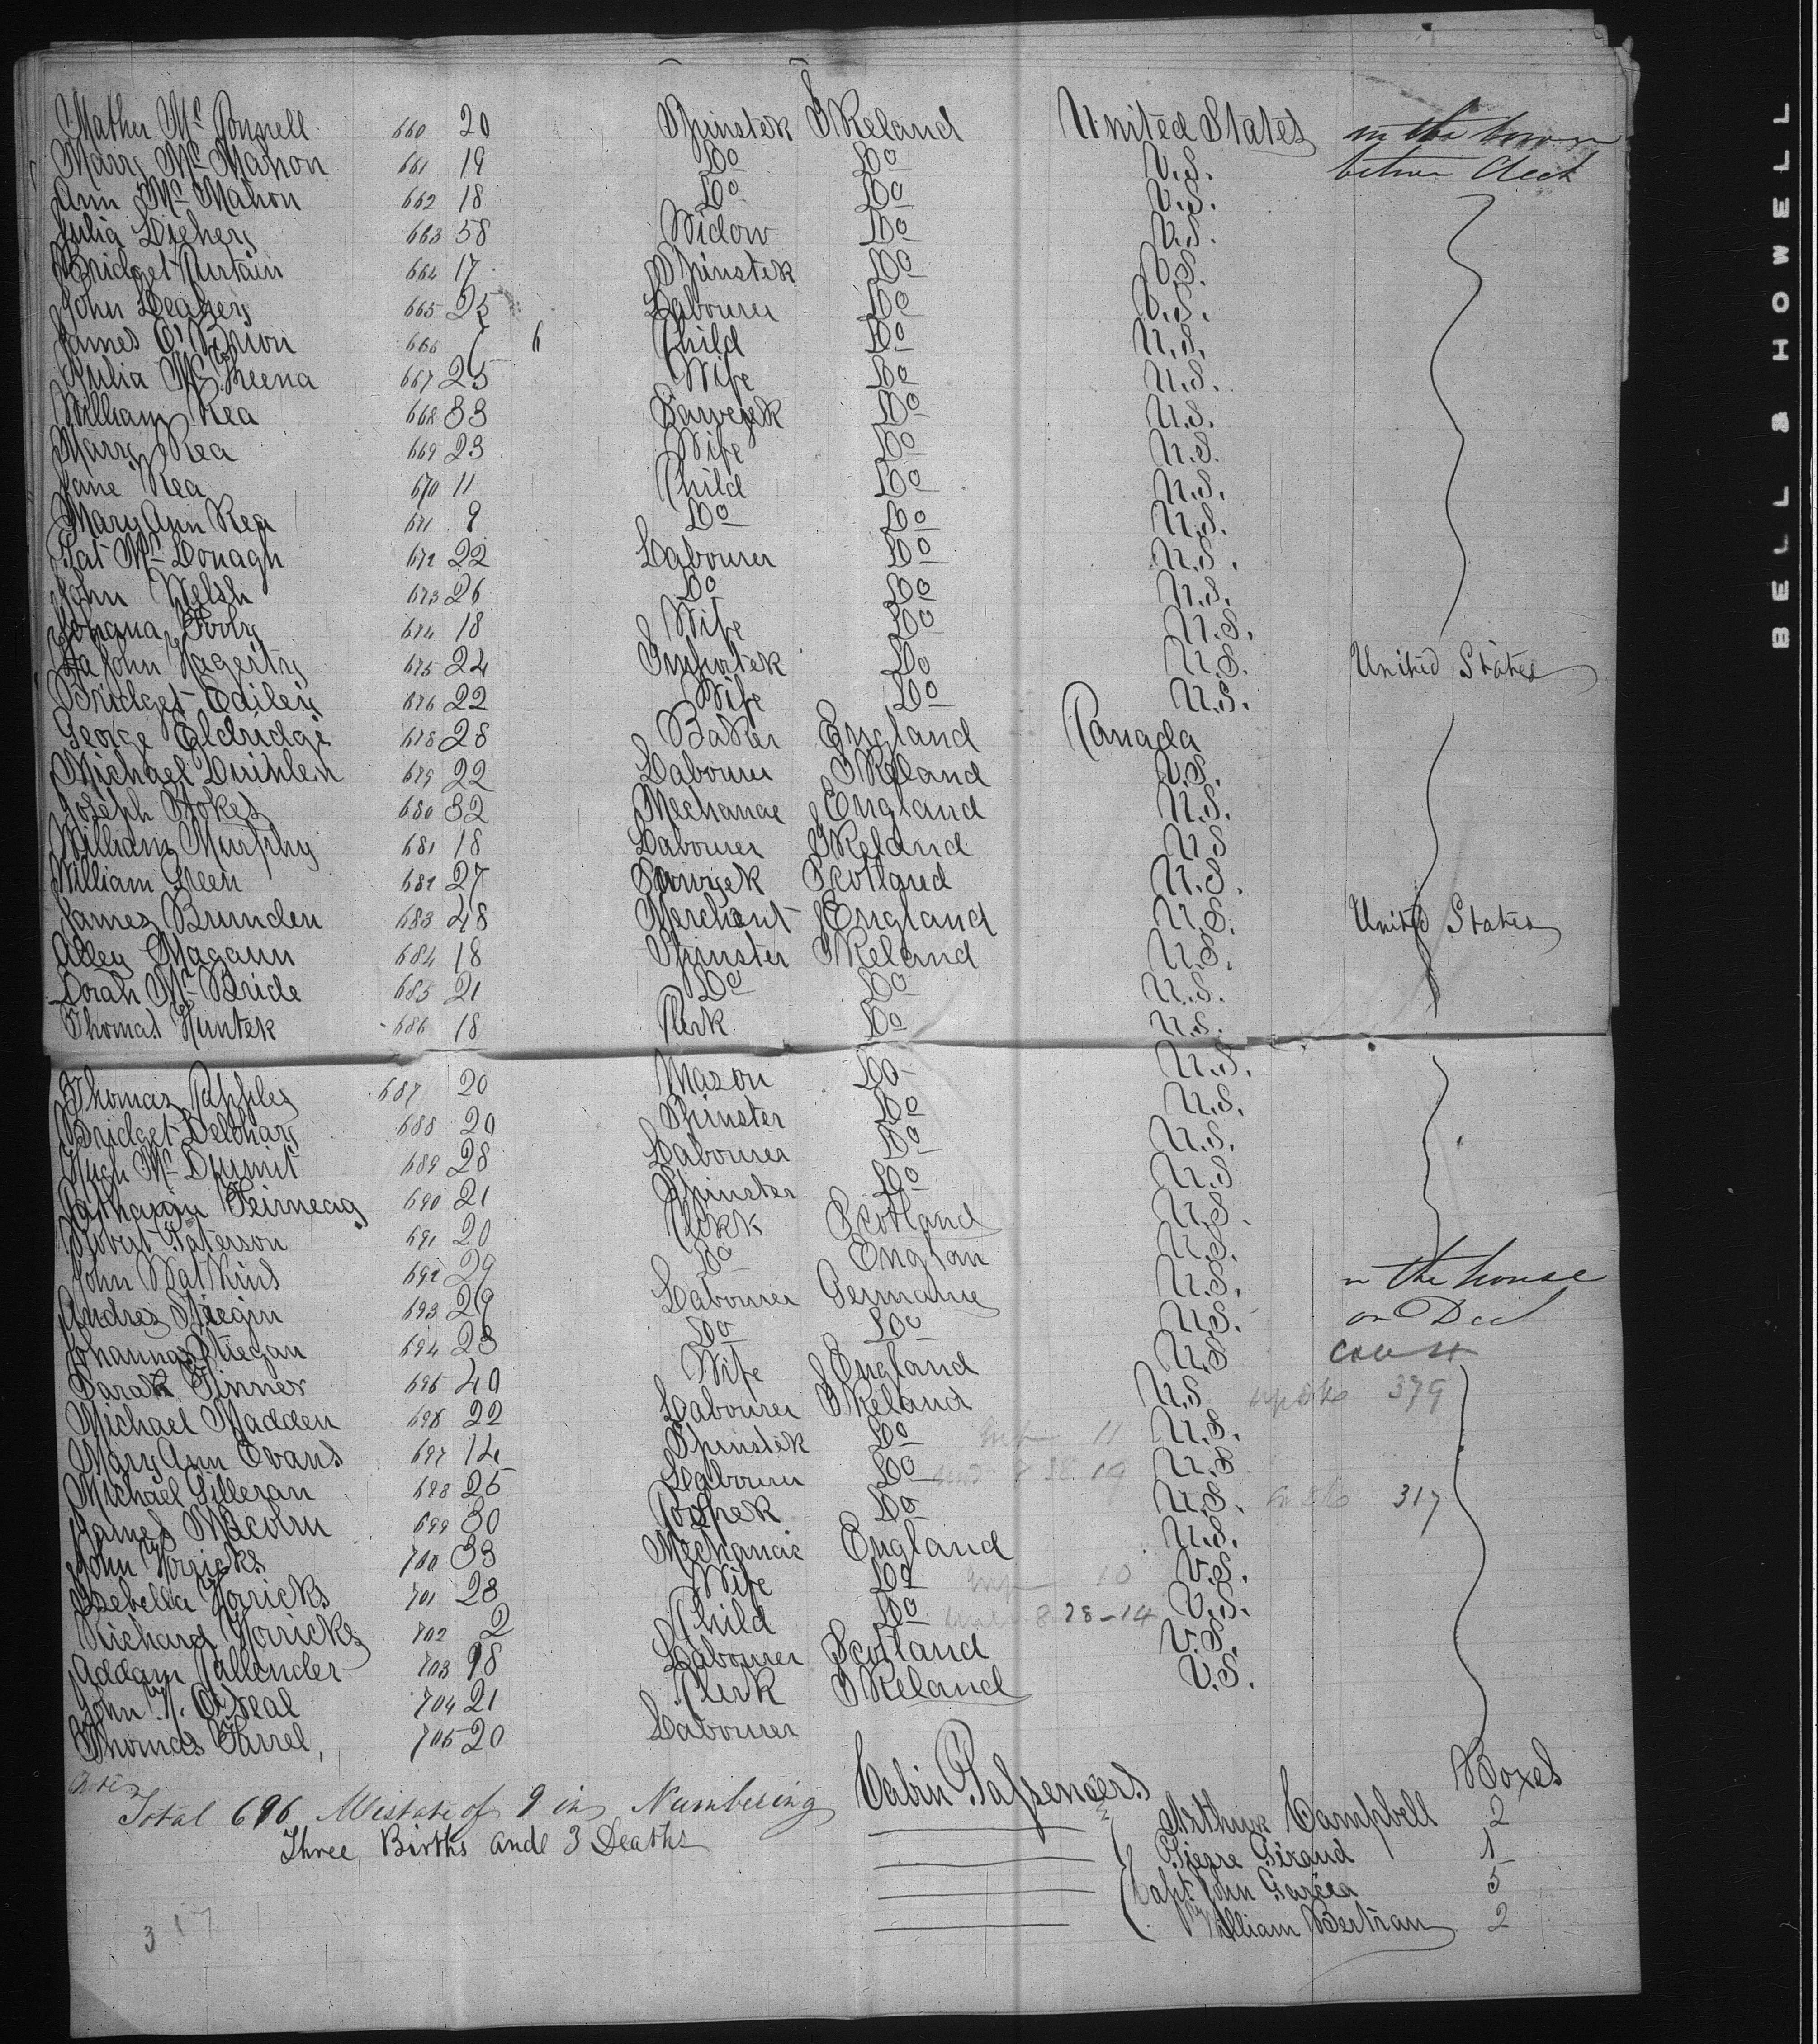 Mather Mc Connell 660 20 Spinster IReland United States in the lower
Mary Mc Mahon 661 19 Do Do U.S. between deck
Ann Mc Mahon 662 18 Do Do U.S.
Julia 663 58 Widow Do U.S.
Bridget Curtain 664 17 Spinster Do U.S.
John Leahey 665 25 Labourer Do U.S.
James O'Brion 666 6 Child Do U.S.
Julia Mc Sheena 667 25 Wife Do U.S.
William Rea 668 33 Do U.S.
Mary Rea 669 23 Wife Do U.S.
Jane Rea 670 11 Child Do U.S.
Mary Ann Rea 671 9 Do Do U.S.
Pat Mc Donagh 672 22 Labourer Do U.S.
John Welsh 673 26 Do Do U.S.
Johana 674 18 Wife Do U.S.
John Hagerty 675 24 Do U.S. United States
Bridget 676 22 Wife Do U.S.
George Eldridge 678 28 Baker England Canada
Michael 679 22 Labourer IReland U.S.
Joseph Stokes 680 32 Mechanac England U.S.
William Murphy 681 18 Labourer IReland U.S.
William Green 682 27 Scotland U.S.
James Brunden 683 48 Merchent England U.S. United States
Alley Magann 684 18 Spinster IReland U.S.
Dorah Mc Bride 685 21 Do Do U.S.
Thomas Hunter 686 18 Clerk Do U.S.
Thomas 687 20 Mason Do U.S.
Bridget 688 20 Spinster Do U.S.
Hugh Mc 689 28 Labourer Do U.S.
690 21 Spinster Do U.S.
Robert Paterson 691 20 Clerk Scotland U.S.
John Watkins 692 29 Do Englan U.S. in the house
Andres Stiegin 693 29 Labourer Germanie U.S. on Deck
Johannas Stiegan 694 23 Do Do U.S.
Sarah Skinner 695 40 Wife England U.S.
Michael Madden 696 22 Labourer IReland U.S. 379
Mary Ann Evans 697 14 Spinster Do 11 U.S.
Michael Gilleran 698 25 Labourer Do U.S.
James Malcolm 699 30 Do U.S. 317
John Horricks 700 33 Mechanic England U.S.
Isebella Horicks 701 23 Wife Do 10 U.S.
Richard Horicks 702 2 Child Do 8 28-14 U.S.
Addam Callender 703 18 Labourer Scotland U.S.
John N. O'Neal 704 21 Clerk IReland U.S.
Thomas Farrel, 705 20 Labourer
Total 696 Mistake of 9 in Numbering
Three Births ande 3 Deaths
Cabin Passengers Boxes
Arthur Campbell 2
Pierre Giraud 1
Capt. John Garcea 5
William Bertran 2
317
BELL & HOWELL